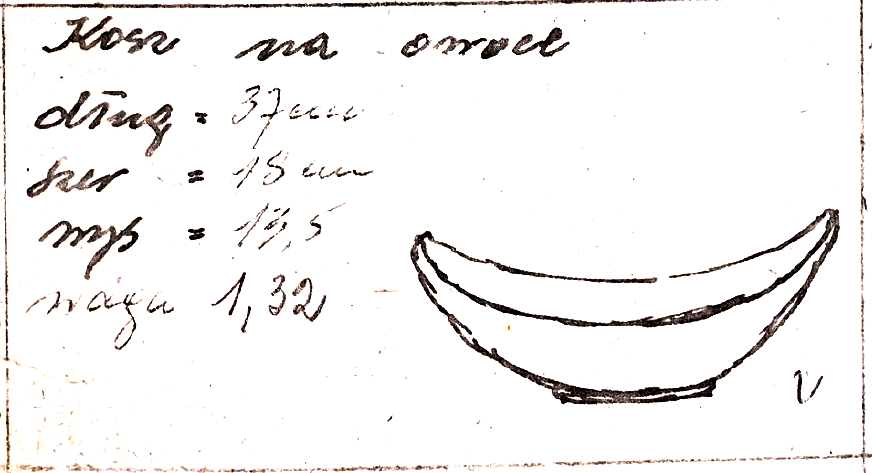 Kosz na owoce
dług = 37cm
szer = 18cm
wys = 13,5
waga 1,32
V